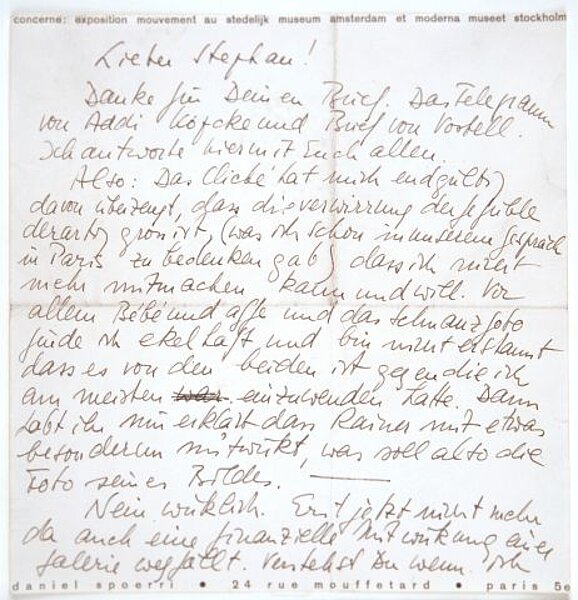 concerne: exposition mouvement au stedelijk museum amsterdam et moderna museet stockholm
Lieber Stephan!
Danke für Deinen Brief. Das Telegramm
von Addi Köpcke und Brief von Vostell.
Ich antworte hiermit Euch allen.
Also: Das Cliché hat mich endgültig
davon überzeugt, dass die verwirrung der gefühle
derartig gross ist, (was ich schon in unserem gespräch
in Paris zu bedenken gab) dass ich nicht
mehr mitmachen kann und will. Vor
allem Bébé und affe und das schwanzfoto
finde ich ekelhaft und bin nicht erstaunt
dass es von den beiden ist gegen die ich
am meisten war einzuwenden hatte. Dann
habt ihr mir erklärt dass Rainer mit etwas
besonderem mitwirkt, was soll also die
Foto seines Bildes.
Nein wirklich. Erst jetzt nicht mehr
da auch eine finanzielle Mitwirkung einer
galerie wegfällt. Verstehst Du wenn ich
daniel spoerri • 24 rue mouffetard • paris 5e